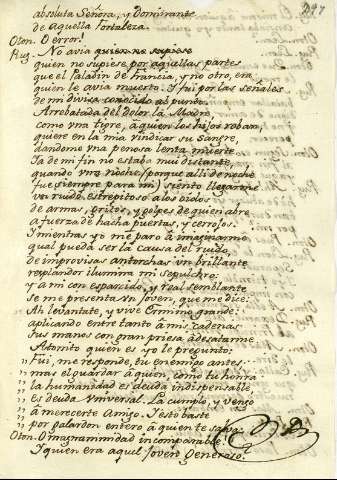 247
absoluta Señora, y Dominante
de aquella Fortaleza.
Oton. O error!
Rug. No avia quien no supiese
quien no supiese por aquellas partes
que el Paladin de Francia, y no otro, era
quien le avia muerto. I fui por las señales
de mi divisa conocido al punto.
Arrebatada del dolor la Madre
como vna tigre, à quien los hijos roban,
quiere en la mia vindicar su Sangre,
dandome vna penosa lenta muerte.
Ia de mi fin no estaba mui distante,
quando vna noche, (porque alli de noche
fue siempre para mi) siento llegarme
vn ruido estrepitoso a los oidos
de armas, gritos, y golpes de quien abre
a fuerza de hacha puertas, y cerrojos.
I mientras yo me paro à imaginarme
qual pueda ser la causa del ruido,
de improvisas antorchas vn brillante
resplandor ilumina mi sepulchro:
y a mi con esparcido, y real semblante
se me presenta vn Joven, que me dice:
„ Ah levantate, y vive Ermino grande:
aplicando entre tanto à mis cadenas
sus manos con gran priesa à desatarme
Atonito quien es yo le pregunto:
„ Fui, me responde, tu enemigo antes:
„ mas el guardar à quien, como tu honra
„ la humanidad es deuda indispensable
„ es deuda vniversal. La cumplo, y vengo
„ à merecerte Amigo. I esto baste
„ por galardon entero à quien te salva.
Oton. O magnanimidad incomparable!
I quien era aquel Joven Generoso?